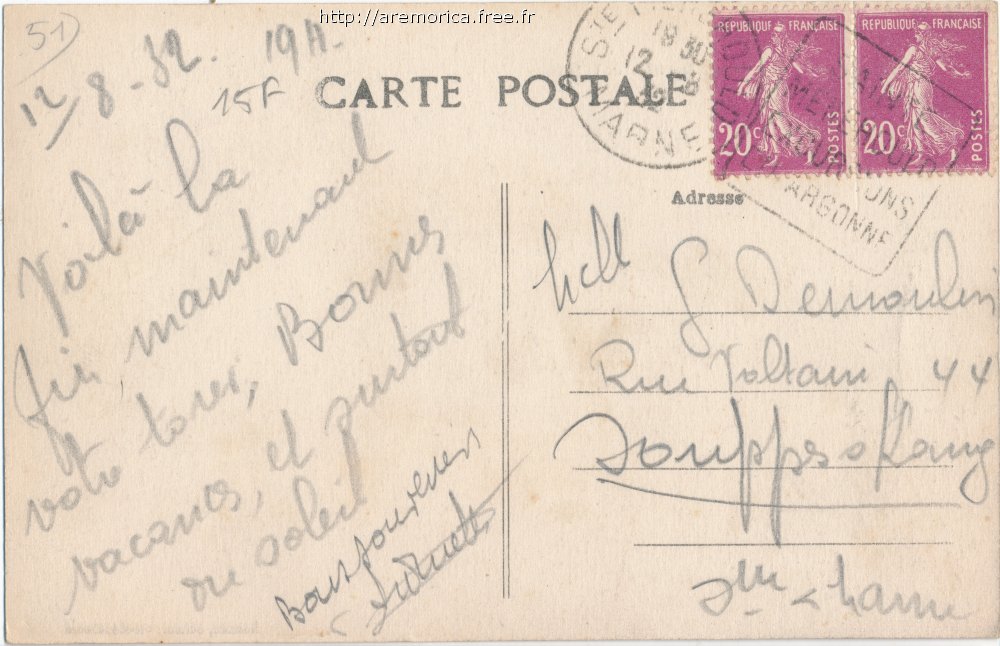 http://aremorica.free.fr
51
12/8-32. 19H-
15F
CARTE POSTALE
STE
18 30
12 8
MARNE
REPUBLIQUE FRANÇAISE
20c
POSTES
REPUBLIQUE FRANÇAISE
20c
POSTES
ARGONNE
Adresse
Voilà la
fin, maintenant
votre tour, Bonnes
vacances, et surtout
du soleil
Bons souvenirs
Melle G Demoulin
Rue Voltaire 44
Souppes s/Loing
S. Marne